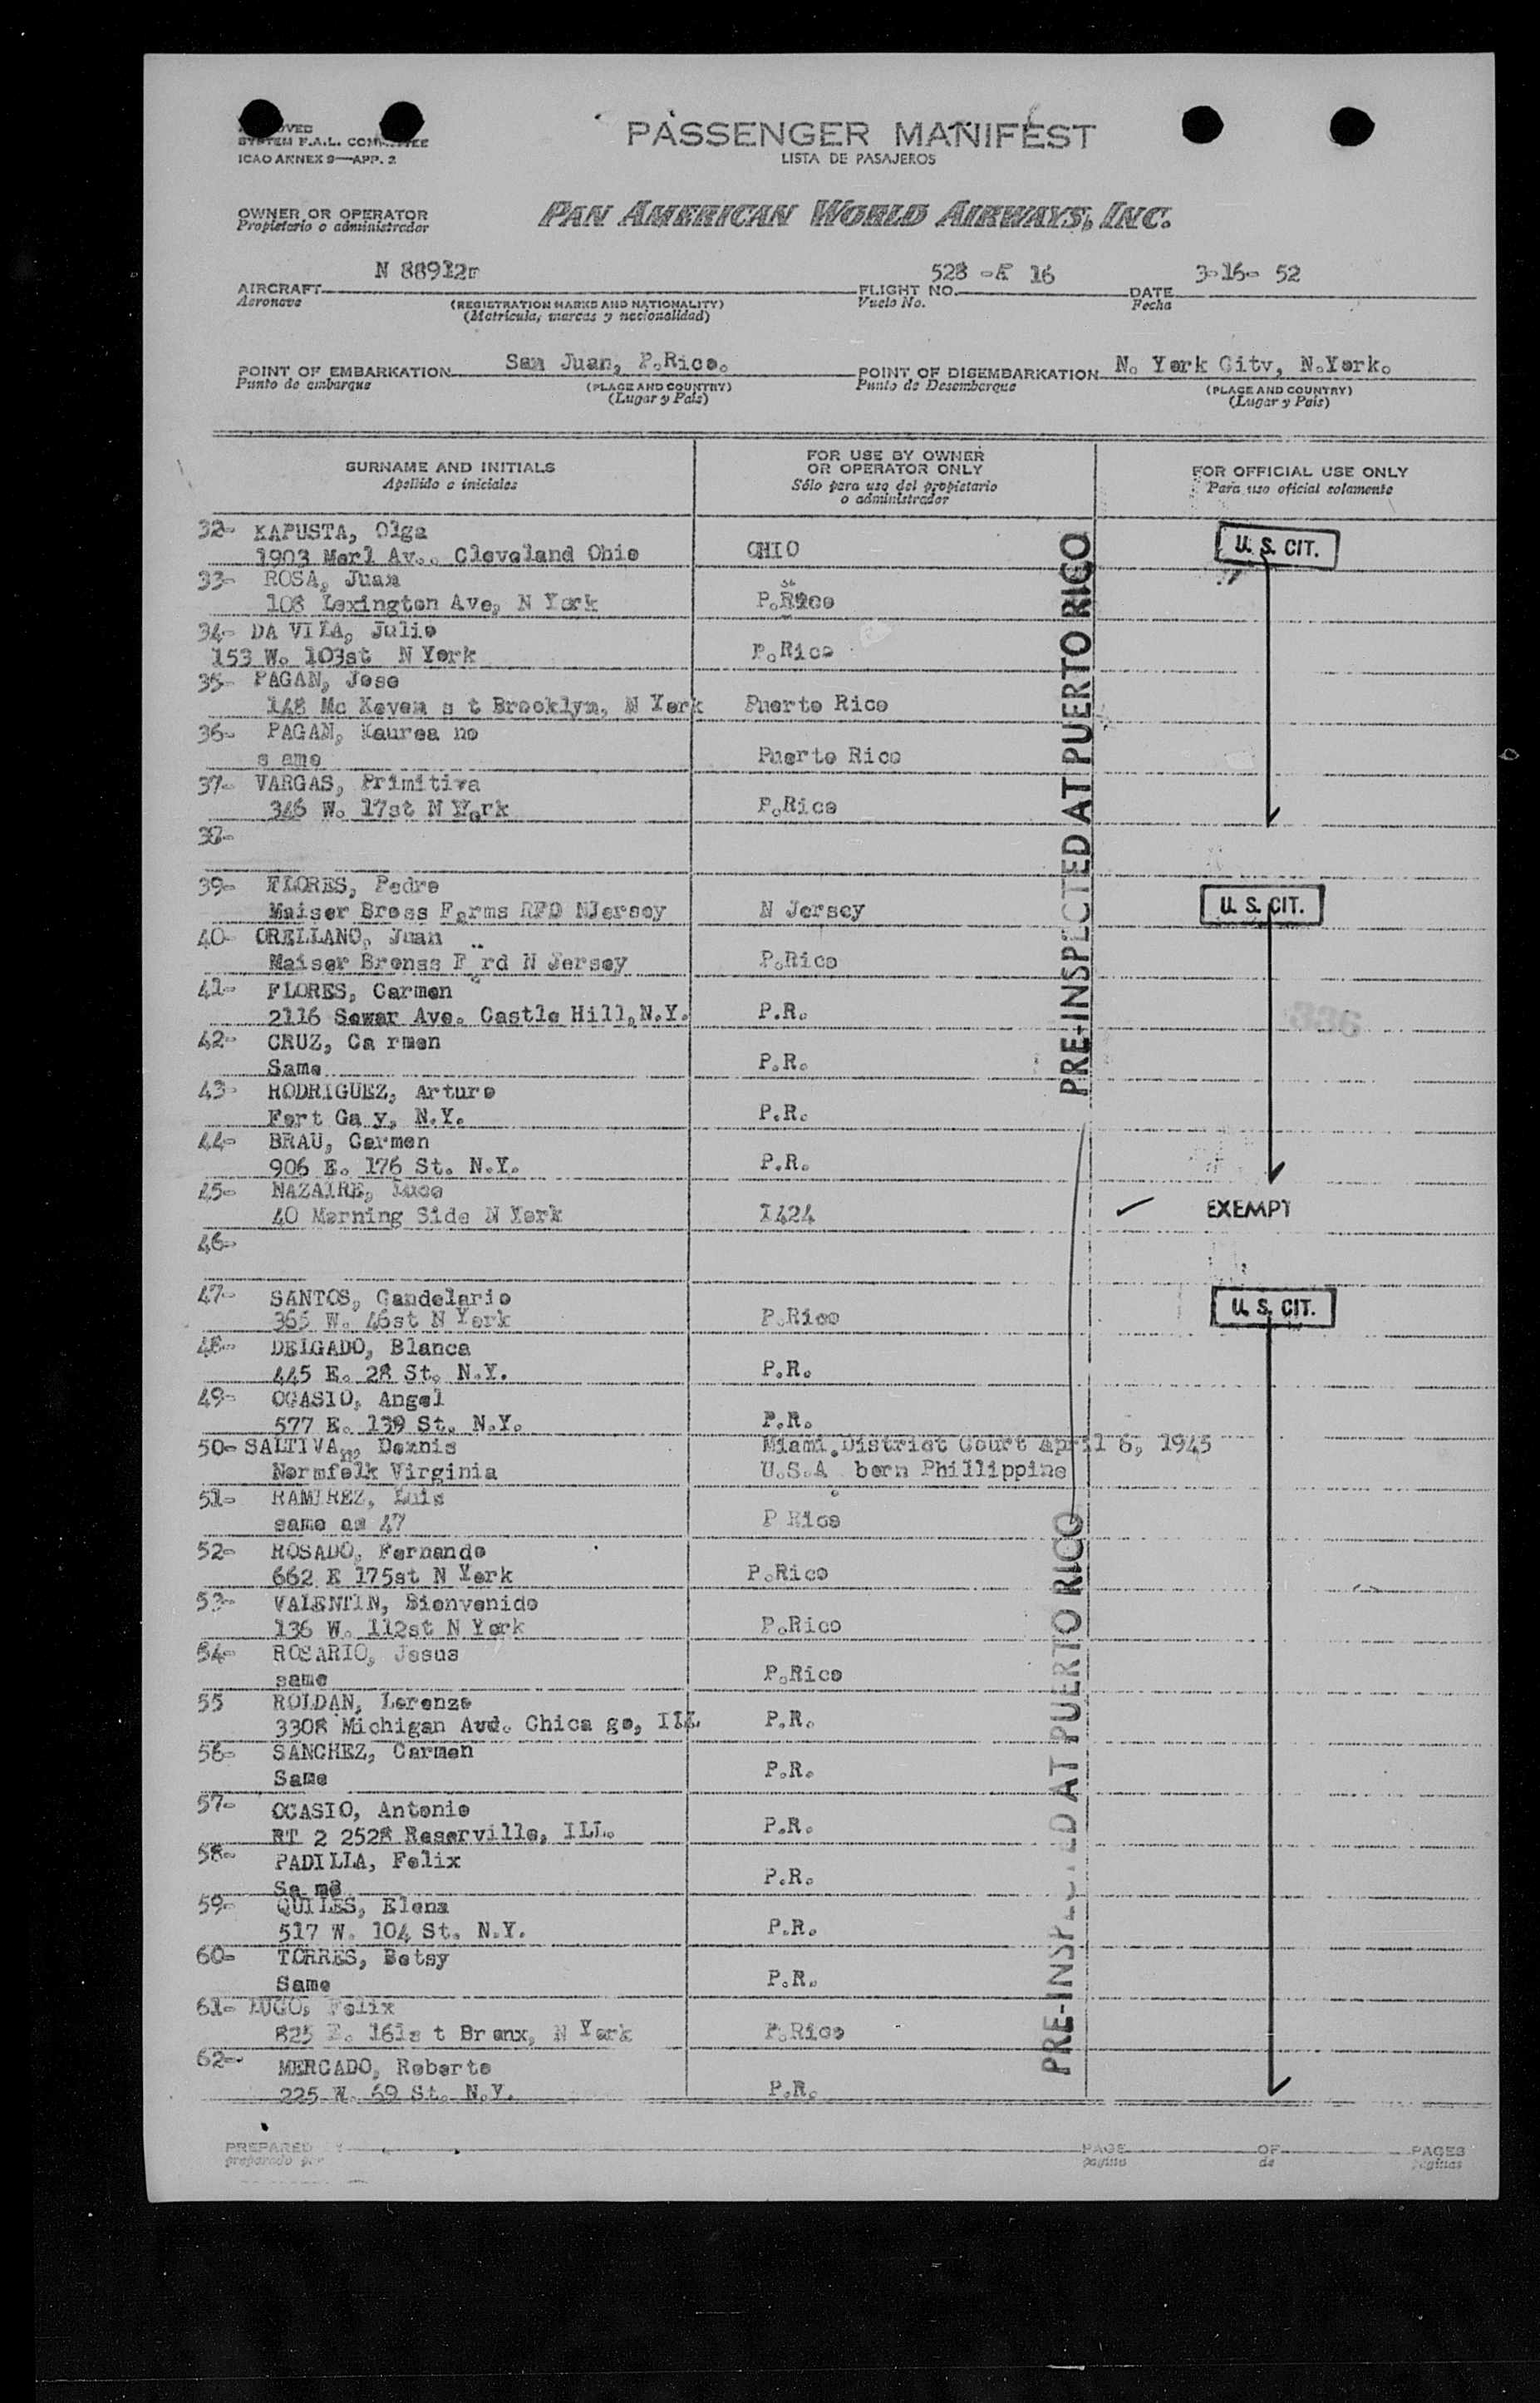 SYSTEM F.A.L. COMMITTEE
ICAO ANNEX 9—APP. 2
PASSENGER MANIFEST
LISTA DE PASAJEROS
OWNER OR OPERATOR
Propietario o administrador
PAN AMERICAN WORLD AIRWAYS, INC.
AIRCRAFT N 88912
Aeronave
(REGISTRATION MARKS AND NATIONALITY)
(Matricula, marcas y nacionalidad)
FLIGHT NO. 528 - 16
Vuelo No.
DATE 3-16- 52
Fecha
POINT OF EMBARKATION San Juan, P.Rico.
Punto de embarque
(PLACE AND COUNTRY)
(Lugar y Pais)
POINT OF DISEMBARKATION N. York City, N.York.
Punto de Desembarque
(PLACE AND COUNTRY)
(Lugar y Pais)
SURNAME AND INITIALS
Apellido e iniciales
FOR USE BY OWNER
OR OPERATOR ONLY
Sólo para uso del propietario
o administrador
FOR OFFICIAL USE ONLY
Para uso oficial solamente
32- KAPUSTA, Olga
1903 Merl Av.. Cleveland Ohio OHIO
U. S. CIT.
33- ROSA, Juan
108 Lexington Ave, N York P.Rico
34- DA VILA, Julio
153 W. 103st N York P.Rico
35- PAGAN, Jose
148 Mc Keven s t Brooklyn, N York Puerto Rico
36- PAGAN, Laurea no
s ame Puerto Rico
37- VARGAS, Primitiva
346 W. 17st N York P.Rico
38-
39- FLORES, Pedro
Maiser Bross Farms RFD NJersey N Jersey
U. S. CIT.
40- ORELLANO, Juan
Maiser Bronss F rd N Jersey P.Rico
41- FLORES, Carmen
2116 Sewar Ave. Castle Hill,N.Y. P.R.
336
42- CRUZ, Ca rmen
Same P.R.
43- RODRIGUEZ, Arturo
Fort Ga y, N.Y. P.R.
44- BRAU, Carmen
906 E. 176 St. N.Y. P.R.
45- NAZAIRE, Luce
40 Morning Side N York I424 EXEMPT
46-
47- SANTOS, Candelario
365 W. 46st N York P.Rico
U. S. CIT.
48- DELGADO, Blanca
445 E. 28 St. N.Y. P.R.
49- OCASIO, Angel
577 E. 139 St. N.Y. P.R.
50- SALTIVA , Dennis Miami.District Court april 6, 1945
Normfolk Virginia U.S.A born Phillippine
51- RAMIREZ, Luis
same as 47 P Rico
52- ROSADO, Fernando
662 E 175st N York P.Rico
53- VALENTIN, Bienvenido
136 W. 112st N York P.Rico
54- ROSARIO, Jesus
same P.Rico
55 ROLDAN, Lorenzo
3308 Michigan Avd. Chica go, ILL P.R.
56- SANCHEZ, Carmen
Same P.R.
57- OCASIO, Antonio
RT 2 2528 Reserville, ILL. P.R.
58- PADILLA, Felix
Sa me P.R.
59- QUILES, Elena
517 W. 104 St. N.Y. P.R.
60- TORRES, Betsy
Same P.R.
61- LUGO, Felix
825 E. 161s t Br onx, N York P.Rico
62- MERCADO, Roberto
225 W. 69 St. N.Y. P.R.
PRE-INSPECTED AT PUERTO RICO
PRE-INSPECTED AT PUERTO RICO
PREPARED BY
preparado por
PAGE OF PAGES
pagina de paginas